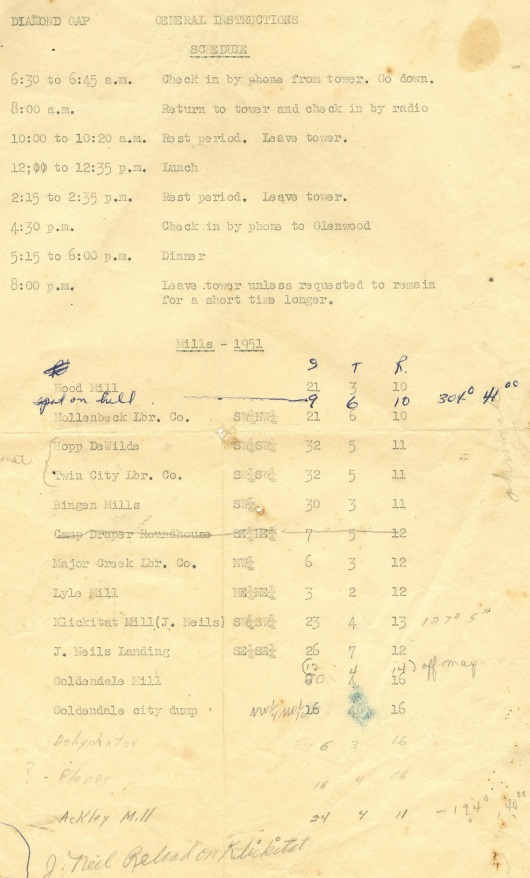 DIAMOND GAP GENERAL INSTRUCTIONS
SCHEDULE
6:30 to 6:45 a.m. Check in by phone from tower. Go down.
8:00 a.m. Return to tower and check in by radio
10:00 to 10:20 a.m. Rest period. Leave tower.
12;00 to 12:35 p.m. Lunch
2:15 to 2:35 p.m. Rest period. Leave tower.
4:30 p.m. Check in by phone to Glenwood
5:15 to 6:00 p.m. Dinner
8:00 p.m. Leave tower unless requested to remain
for a short time longer.
Mills - 1951
S T R.
Hood Mill 21 3 10
spot on hill 9 6 10 304° 41'00
Hollenbeck Lbr. Co. SW¼NW¼ 21 6 10
Hopp DeWilde SW¼SW¼ 32 5 11
Twin City Lbr. Co. SW¼SW¼ 32 5 11
Bingen Mills SW¼ 30 3 11
Camp Draper Roundhouse SE¼NE¼ 7 5 12
Major Creek Lbr. Co. NW¼ 6 3 12
Lyle Mill NE¼NE¼ 3 2 12
Klickitat Mill(J. Neils) SW¼SW¼ 23 4 13 127° 5"
J. Neils Landing SE¼SE¼ 26 7 12
(12 4 14) off map
Goldendale Mill 20 4 16
Goldendale city dump NW¼NW¼ 16 16
Dehydrator 6 3 16
? - Planer 16 4 16
Ackley Mill 24 4 11 - 194° 40'00
J. Neil Reload on Klickitat